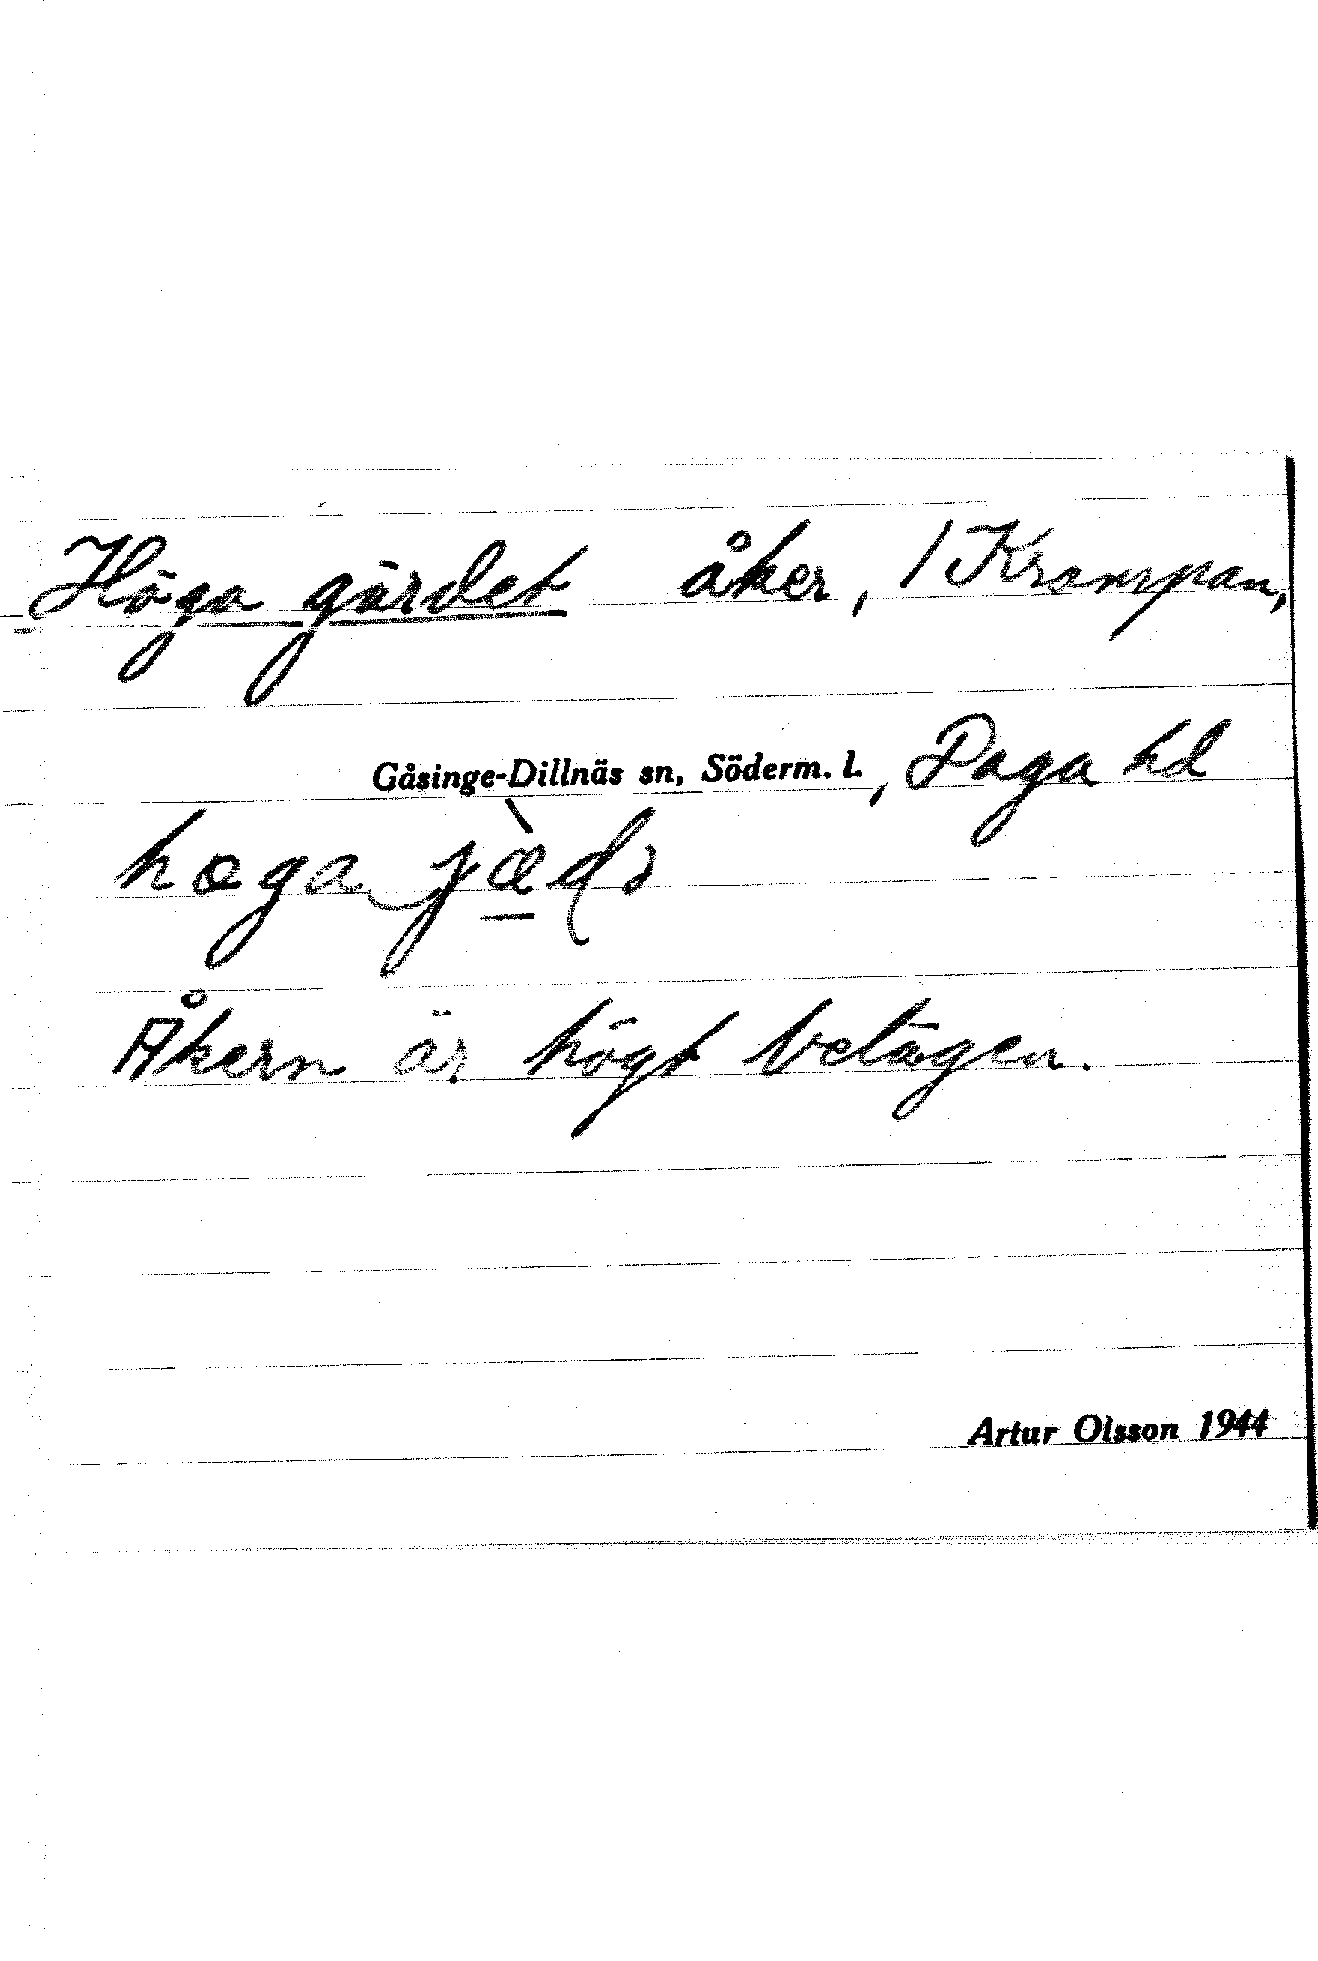 Höga gärdet åker, / Krampan,
Gåsinge-Dillnäs sn, Söderm. l., Daga hd
Åkern är högt belägen.
Artur Olsson 1944